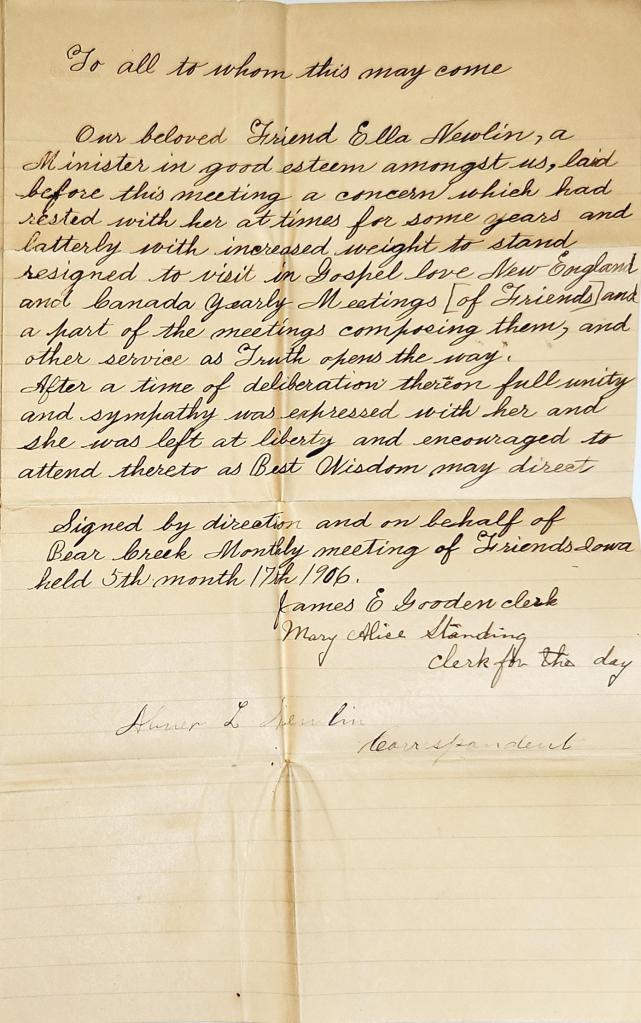 To all to whom this may come
Our beloved Friend Ella Newlin, a
Minister in good esteem amongst us, laid
before this meeting a concern which had
rested with her at times for some years and
latterly with increased weight to stand
resigned to visit in Gospel love New England
and Canada Yearly Meetings [of Friends] and
a part of the meetings composing them, and
other service as Truth opens the way.
After a time of deliberation thereon full unity
and sympathy was expressed with her and
she was left at liberty and encouraged to
attend thereto as Best Wisdom may direct
Signed by direction and on behalf of
Bear Creek Monthly meeting of Friends Iowa
held 5th month 17th 1906.
James E Gooden clerk
Mary Alice Standing
clerk for the day
Abner L Newlin
Correspondent